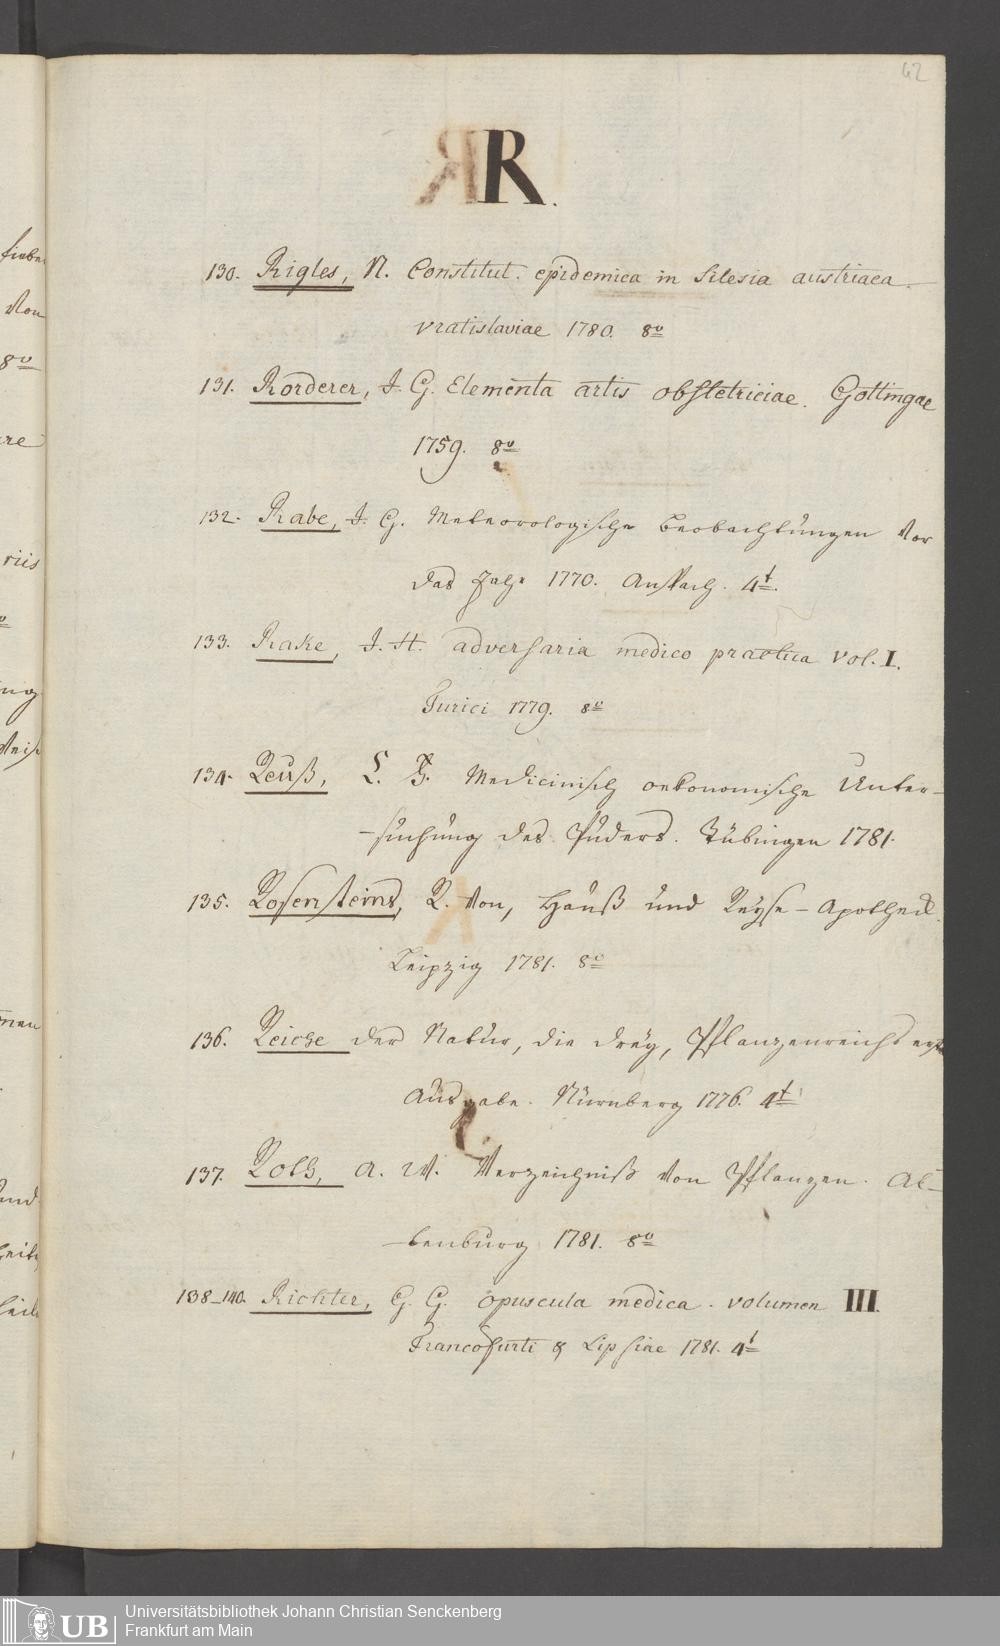 62
R.
130. Rigles, N. Constitut. epidemica in Silesia austriaca
vratislaviae 1780. 8º
131. Rorderer, J. G. Elementa artis obstetriciae. Gottingae
1759. 8º
132. Rabe, J. G. Meteorologische Beobachtungen vor
das Jahr 1770. Anspach. 4t.
133. Rake, J. H. adversaria medico practica vol. I.
Turici 1779. 8º
134. Reuß, Medicinisch oekonomische Unter-
-suchung des Puders. Tübingen 1781.
135. Rosensteins, R. von, Hauß und Reyse-Apotheck.
Leipzig 1781. 8º
136. Reiche der Natur, die drey, Pflanzenreichs
Ausgabe. Nürnberg 1776. 4t
137. Roth, A. W. Verzeichniß von Pflanzen. Al-
-tenburg 1781. 8º
138-140. Richter, G. G. opuscula medica. volumen III.
Francofurti & Lipsiae 1781. 4t
fieber
von
8º
re
riis
ng
men
und
UB
Universitätsbibliothek Johann Christian Senckenberg
Frankfurt am Main